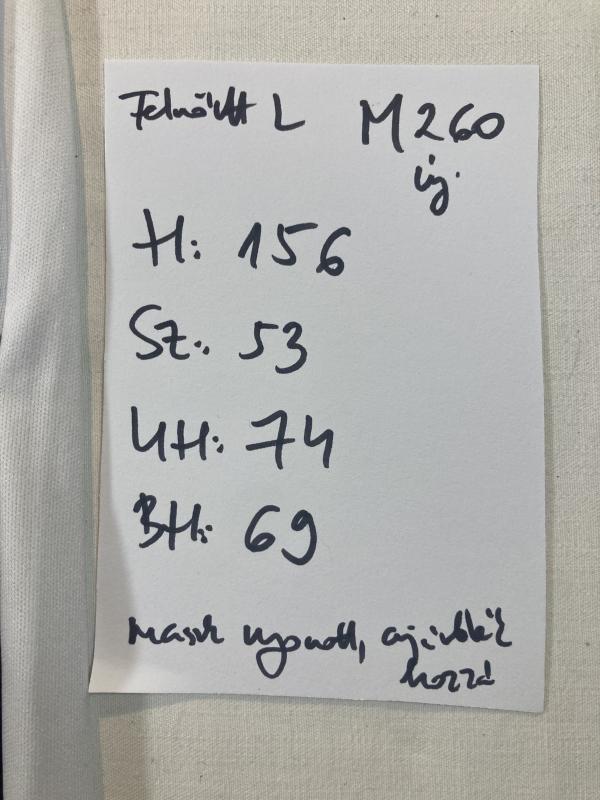 Felnőtt L M260
H: 156
Sz.: 53
UH: 74
BH: 69
nyomott, ajándék
hozzá